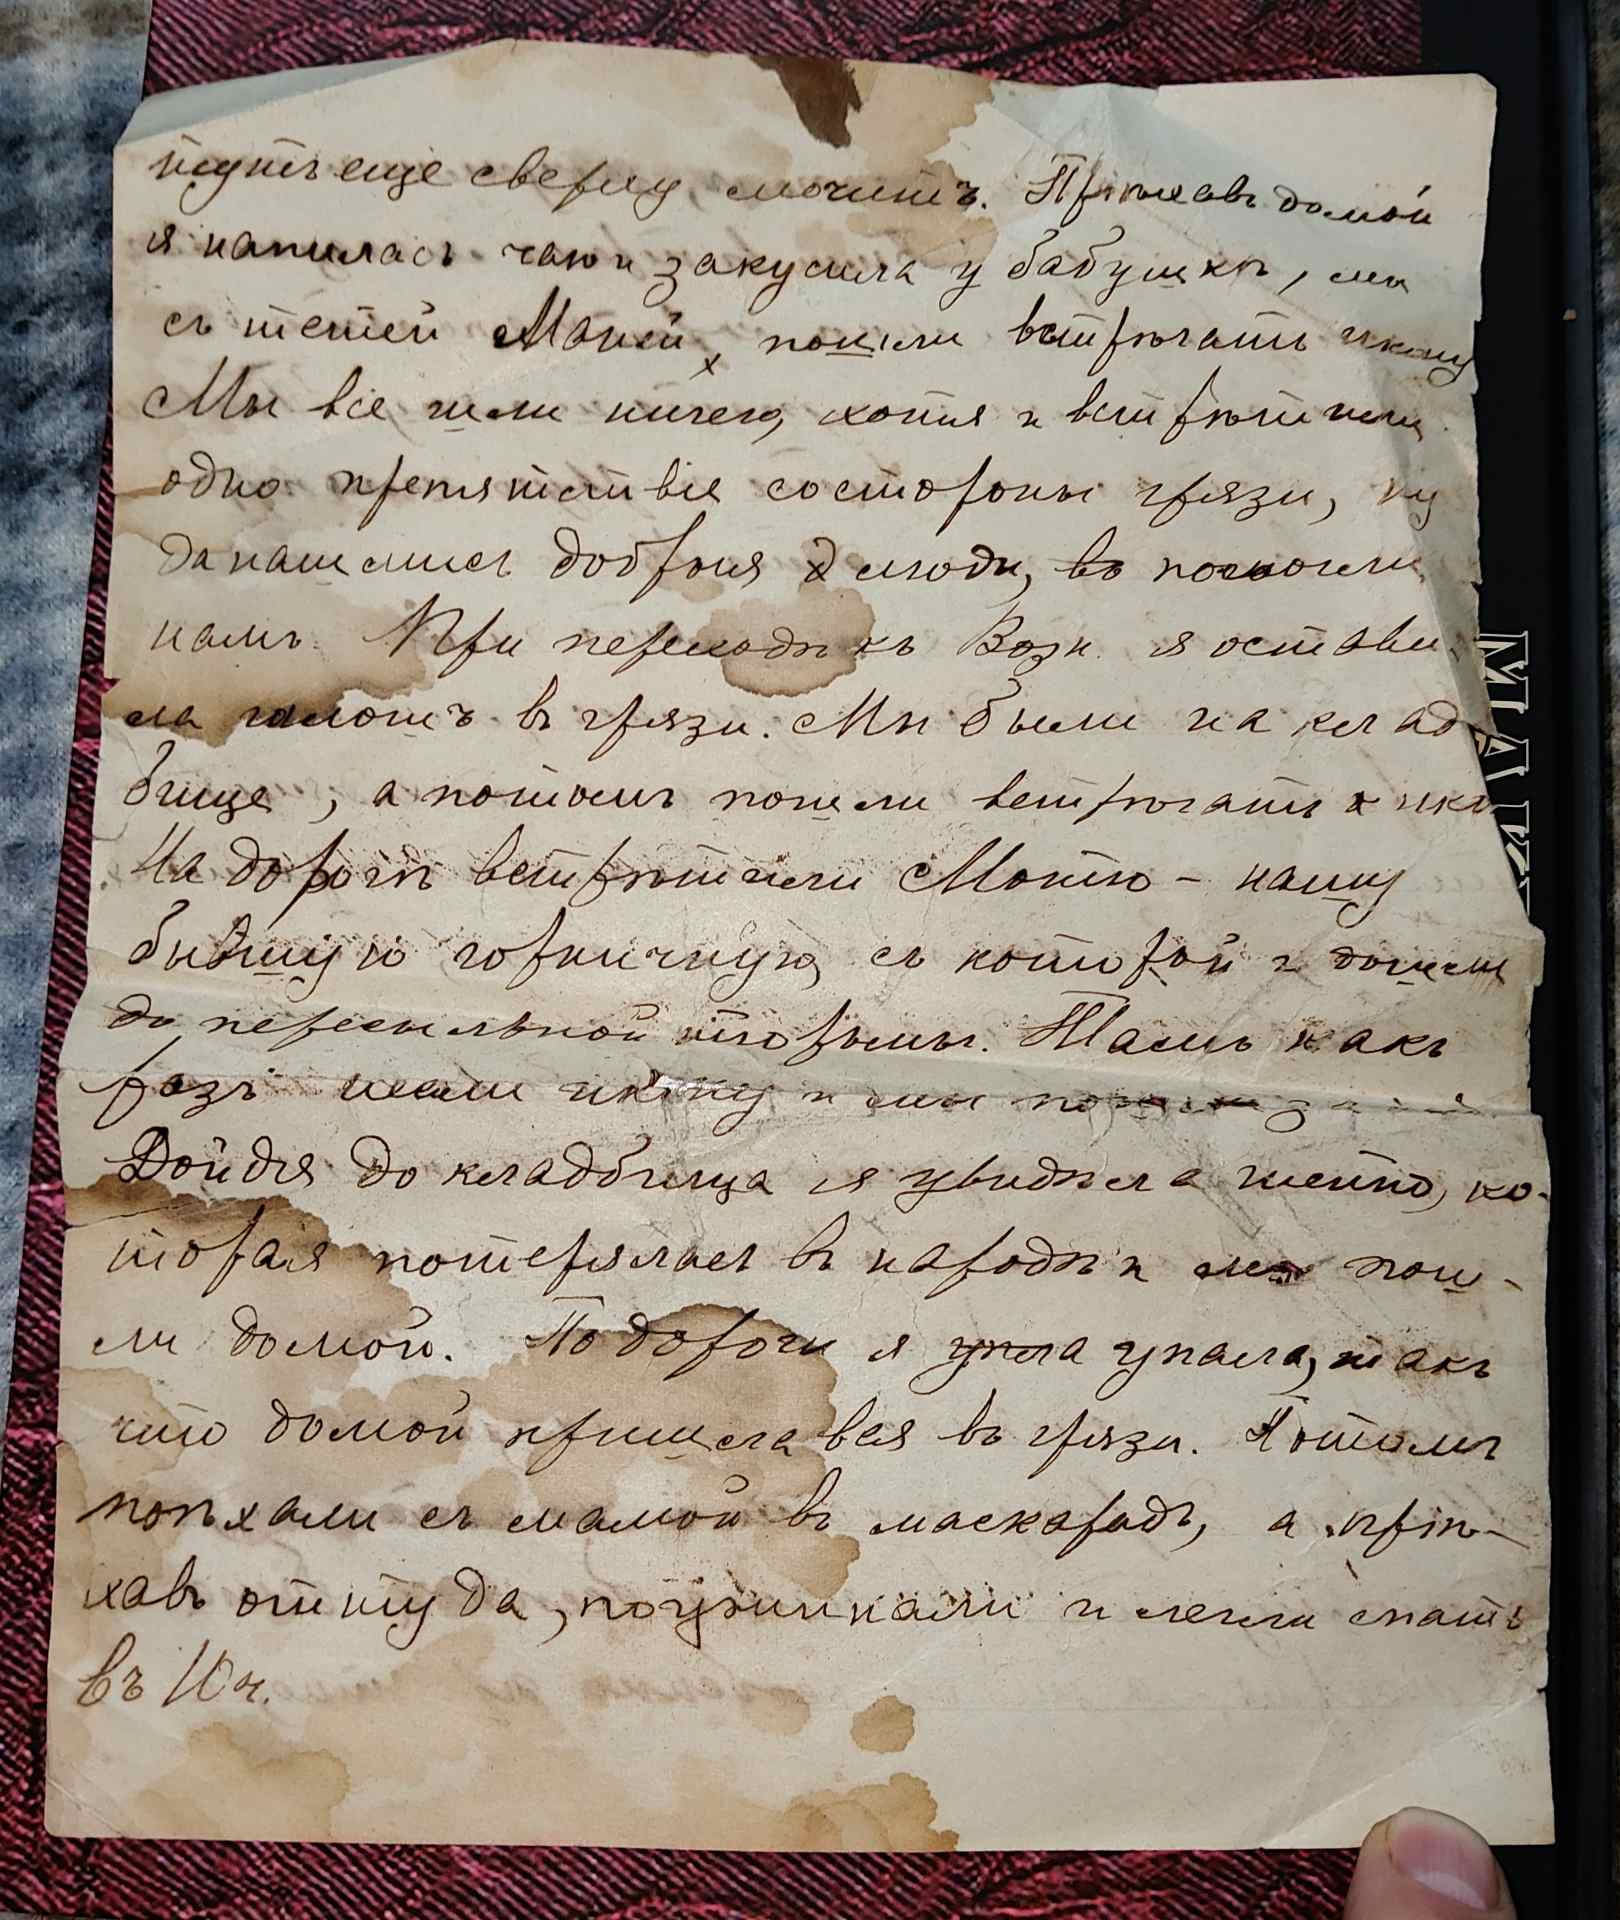 тутъ еще сверху мочитъ. Пріѣхавъ домой
я напилась чаю и закусила у бабушки, мы
съ тетей Маней, пошли встрѣчать икону
Мы все шли ничего, хотя и встрѣтили
одно препятствіе состороны грязи, ну
да нашлись добрыя люди, помогли
намъ. При переходѣ къ Возн. я остави-
ла галошъ въ грязи. Мы были на клад
бище, а потомъ пошли встрѣчать ико
На дорогѣ встрѣтили Мотю - нашу
бывшую горничную, съ которой и дошли
до пересыльной тюрьмы. Тамъ какъ
разъ несли икону и мы пошли за ней
Дойдя до кладбища я увидѣла тетю, ко-
торая потерялась въ народѣ и мы пош-
ли домой. По дороги я упала упала, такъ
что домой пришла вся въ грязи. Потомъ
поѣхали съ мамой въ маскарадъ, а пріѣ-
хавъ оттуда, поужинали и легли спать
въ 10 ч.
МАГ